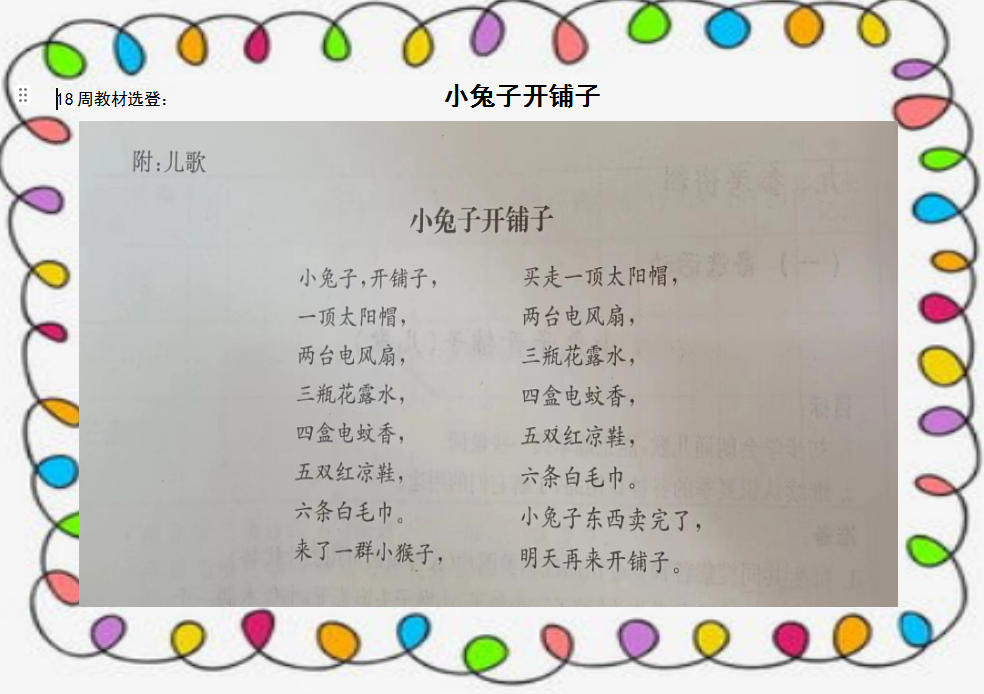 18 周教材选登:
小兔子开铺子
附:儿歌
小兔子开铺子
小兔子,开铺子,
一顶太阳帽,
两台电风扇,
三瓶花露水,
四盒电蚊香,
五双红凉鞋,
六条白毛巾。
来了一群小猴子,
买走一顶太阳帽,
两台电风扇,
三瓶花露水,
四盒电蚊香,
五双红凉鞋,
六条白毛巾。
小兔子东西卖完了,
明天再来开铺子。